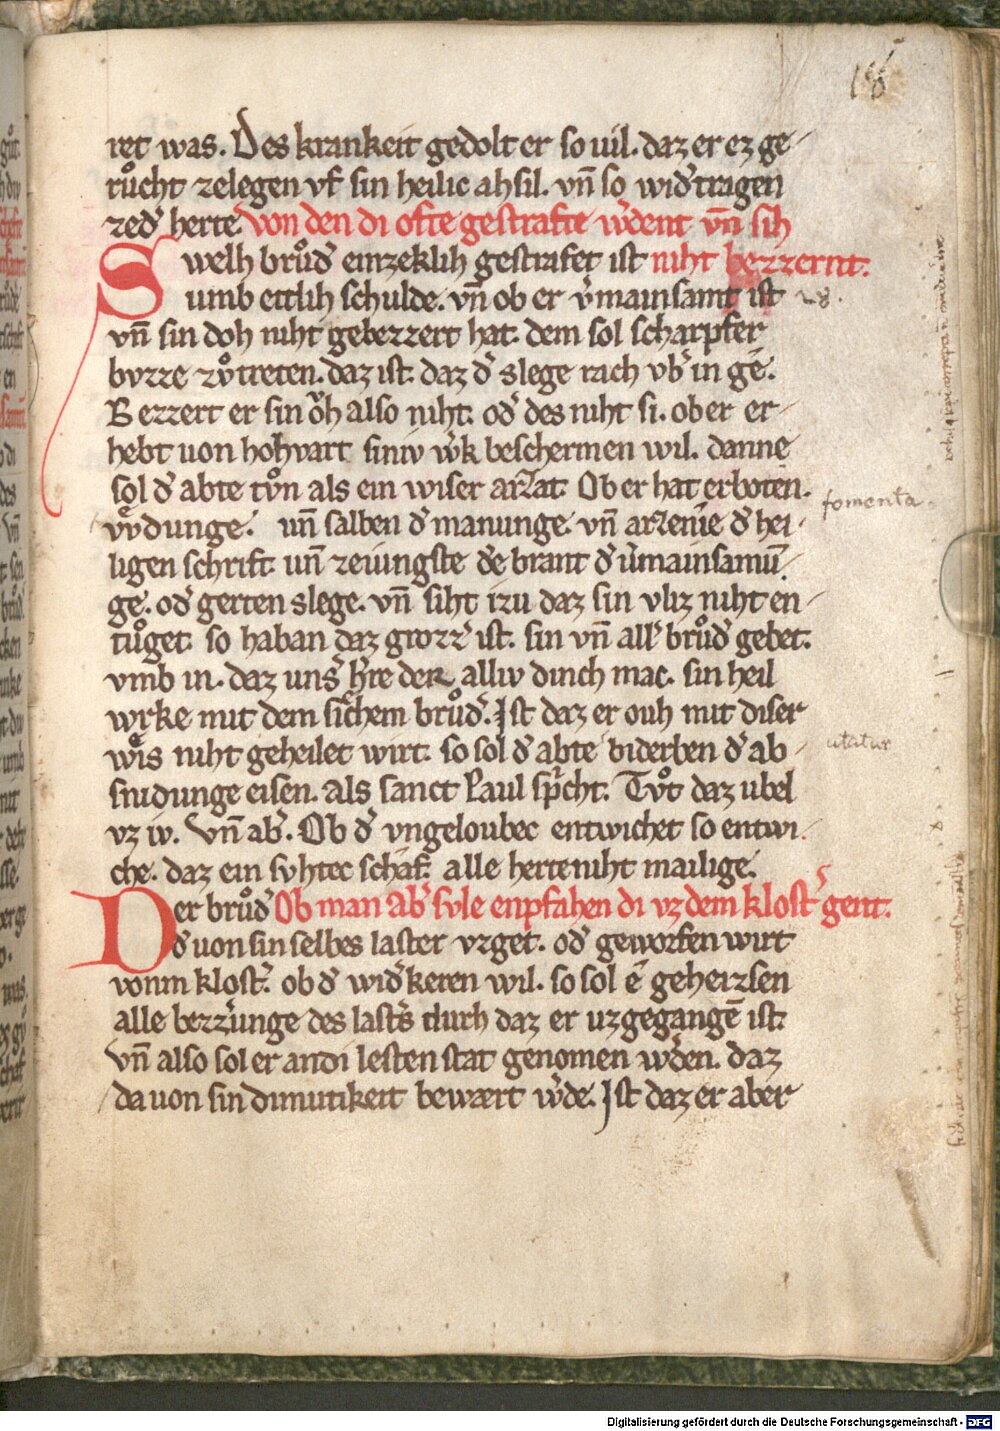 18
ret was. Des krankeit gedolt er so uil. daz er ez ge-
ruͦcht zelegen vf sin heilic ahsil. vn̄ so wid͛ tragen
zed͛ herte. Von den di ofte gestrafte w͛dent vn̄ sih
Swelh bruͦd͛ einzeklih gestrafet ist niht bezzernt.
umb ettlih schulde. vn̄ ob er v͛mainsamt ist 28.
vn̄ sin doh niht gebezzert hat. dem sol scharpfer
bvzze zvͦtreten. daz ist. daz d͛ slege rach vb͛ in ge.
Bezzert er sin oͮh also niht. od͛ des niht si. ob er er-
hebt uon hohvart siniv w͛k beschermen wil. danne
sol d͛ abte tvͦn als ein wiser arzat. Ob er hat erboten.
dunge. un̄ salben d͛ manunge. vn̄ arzenie d͛ hei-
ligen schrift. un̄ zeiungste de brant d͛ v͛mainsamū-
ge. od͛ gerten slege. vn̄ siht izu daz sin vliz niht en-
tuͦget. so haban daz grozz͛ ist. sin vn̄ all͛ bruͦd͛ gebet.
vmb in. daz uns͛ h͛re der alliv dinch mac. sin heil
wrke mit dem sichem bruͦd͛. Ist daz er ouh mit diser
wis niht geheilet wirt. so sol d͛ abte biderben d͛ ab-
snidunge eisen. als sanct Paul sp͛cht. Tvͦt daz ubel
vz iv. Vn̄ ab͛. Ob d͛ vngeloubec entwichet so entwi-
che. daz ein svhtec schaf. alle herte niht mailige.
Der bruͦd͛ Ob man ab͛ svle enpfahen di vz dem klost͛ gent.
d͛ uon sin selbes laster vzget. od͛ geworfen wirt
vonm klost͛. ob d͛ wid͛keren wil. so sol e͛ geheizsen
alle bezz͛unge des last͛s durh daz er uzgegangē ist.
Vn̄ also sol er andi lesten stat genomen w͛den. daz
da uon sin dimutikeit bewært w͛de. Ist daz er aber
fomenta.
utatur
Digitalisierung gefördert durch die Deutsche Forschungsgemeinschaft - DFG